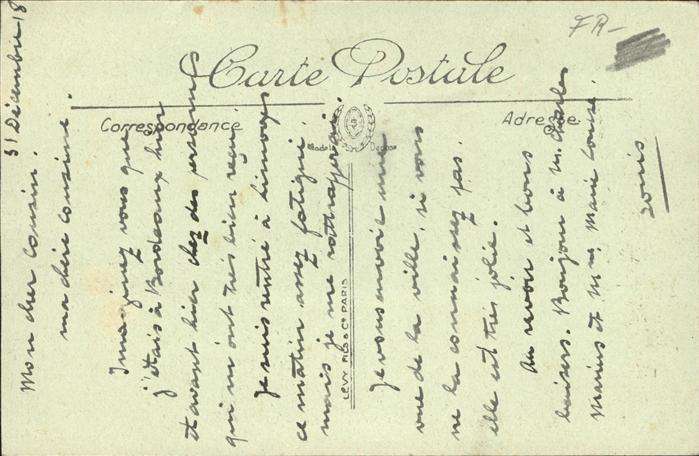 Carte Postale
Correspondance
Adresse
FR-
LEVY FILS & Cie PARIS
31 Décembre 18
Mon cher cousin.
ma chère cousine.
Imaginez vous que
j'étais à Bordeaux hier
et avant hier chez des personnes
qui m'ont très bien reçu
Je suis rentré à Limoges
ce matin assez fatigué.
mais je me rattraperai.
Je vous envoie une
vue de la ville, si vous
ne la connaissez pas.
elle est très jolie.
Au revoir et bons
baisers. Bonjour à M. Charles
Marius et Mme Marie Louise.
Louis